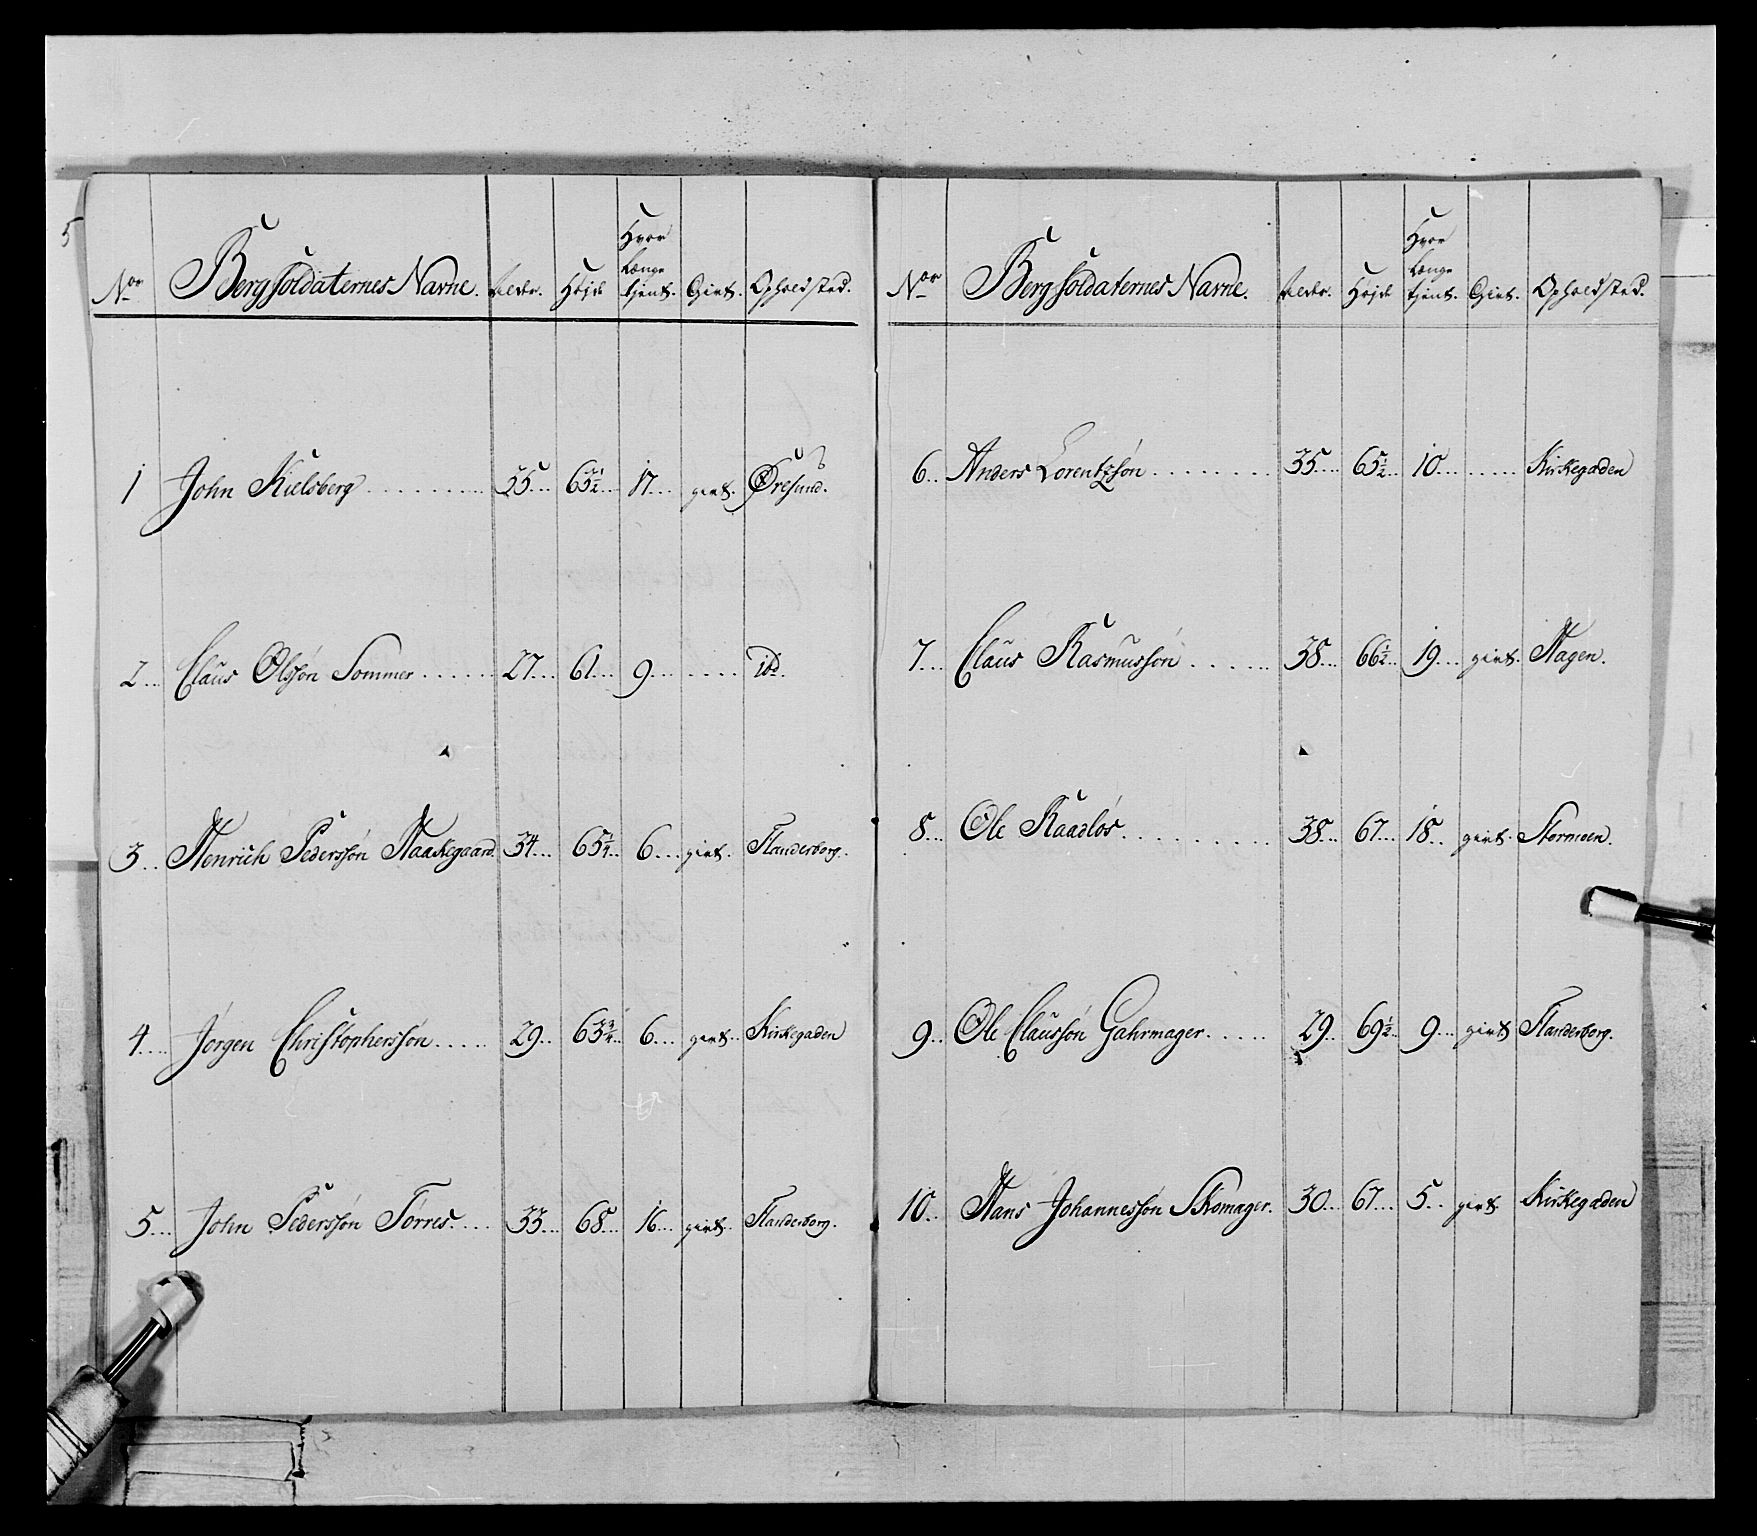 5
Nor Bergsoldaternes Navne. Alder. Højde Hvor længe tjent. Givt. Opholdsted.
1 John Kielsberg 35 63½ 17 givt. Øresund.
2 Claus Olssøn Sommer 27 61 9 id.
3 Henrich Pederssøn Haaskegaard 34 65¼ 6 givt. Flanderborg.
4 Jørgen Christopherssøn 29 63¾ 6 givt. Kirkegaden
5 John Pederssøn Tørres. 33 68 16 givt. Flanderborg.
Nor Bergsoldaternes Navne. Alder. Højde Hvor længe tjent. Givt. Opholdsted.
6 Anders Lorentzsøn 35 65½ 10 Kirkegaden
7 Claus Rasmussøn 38 66½ 19 givt. Hagen.
8 Ole Raadløs 38 67 18 givt. Stormoen.
9 Ole Claussøn Gahrmager 29 69½ 9 givt Flanderborg.
10 Hans Johannessøn Skomager. 30 67 5 givt. Kirkegaden